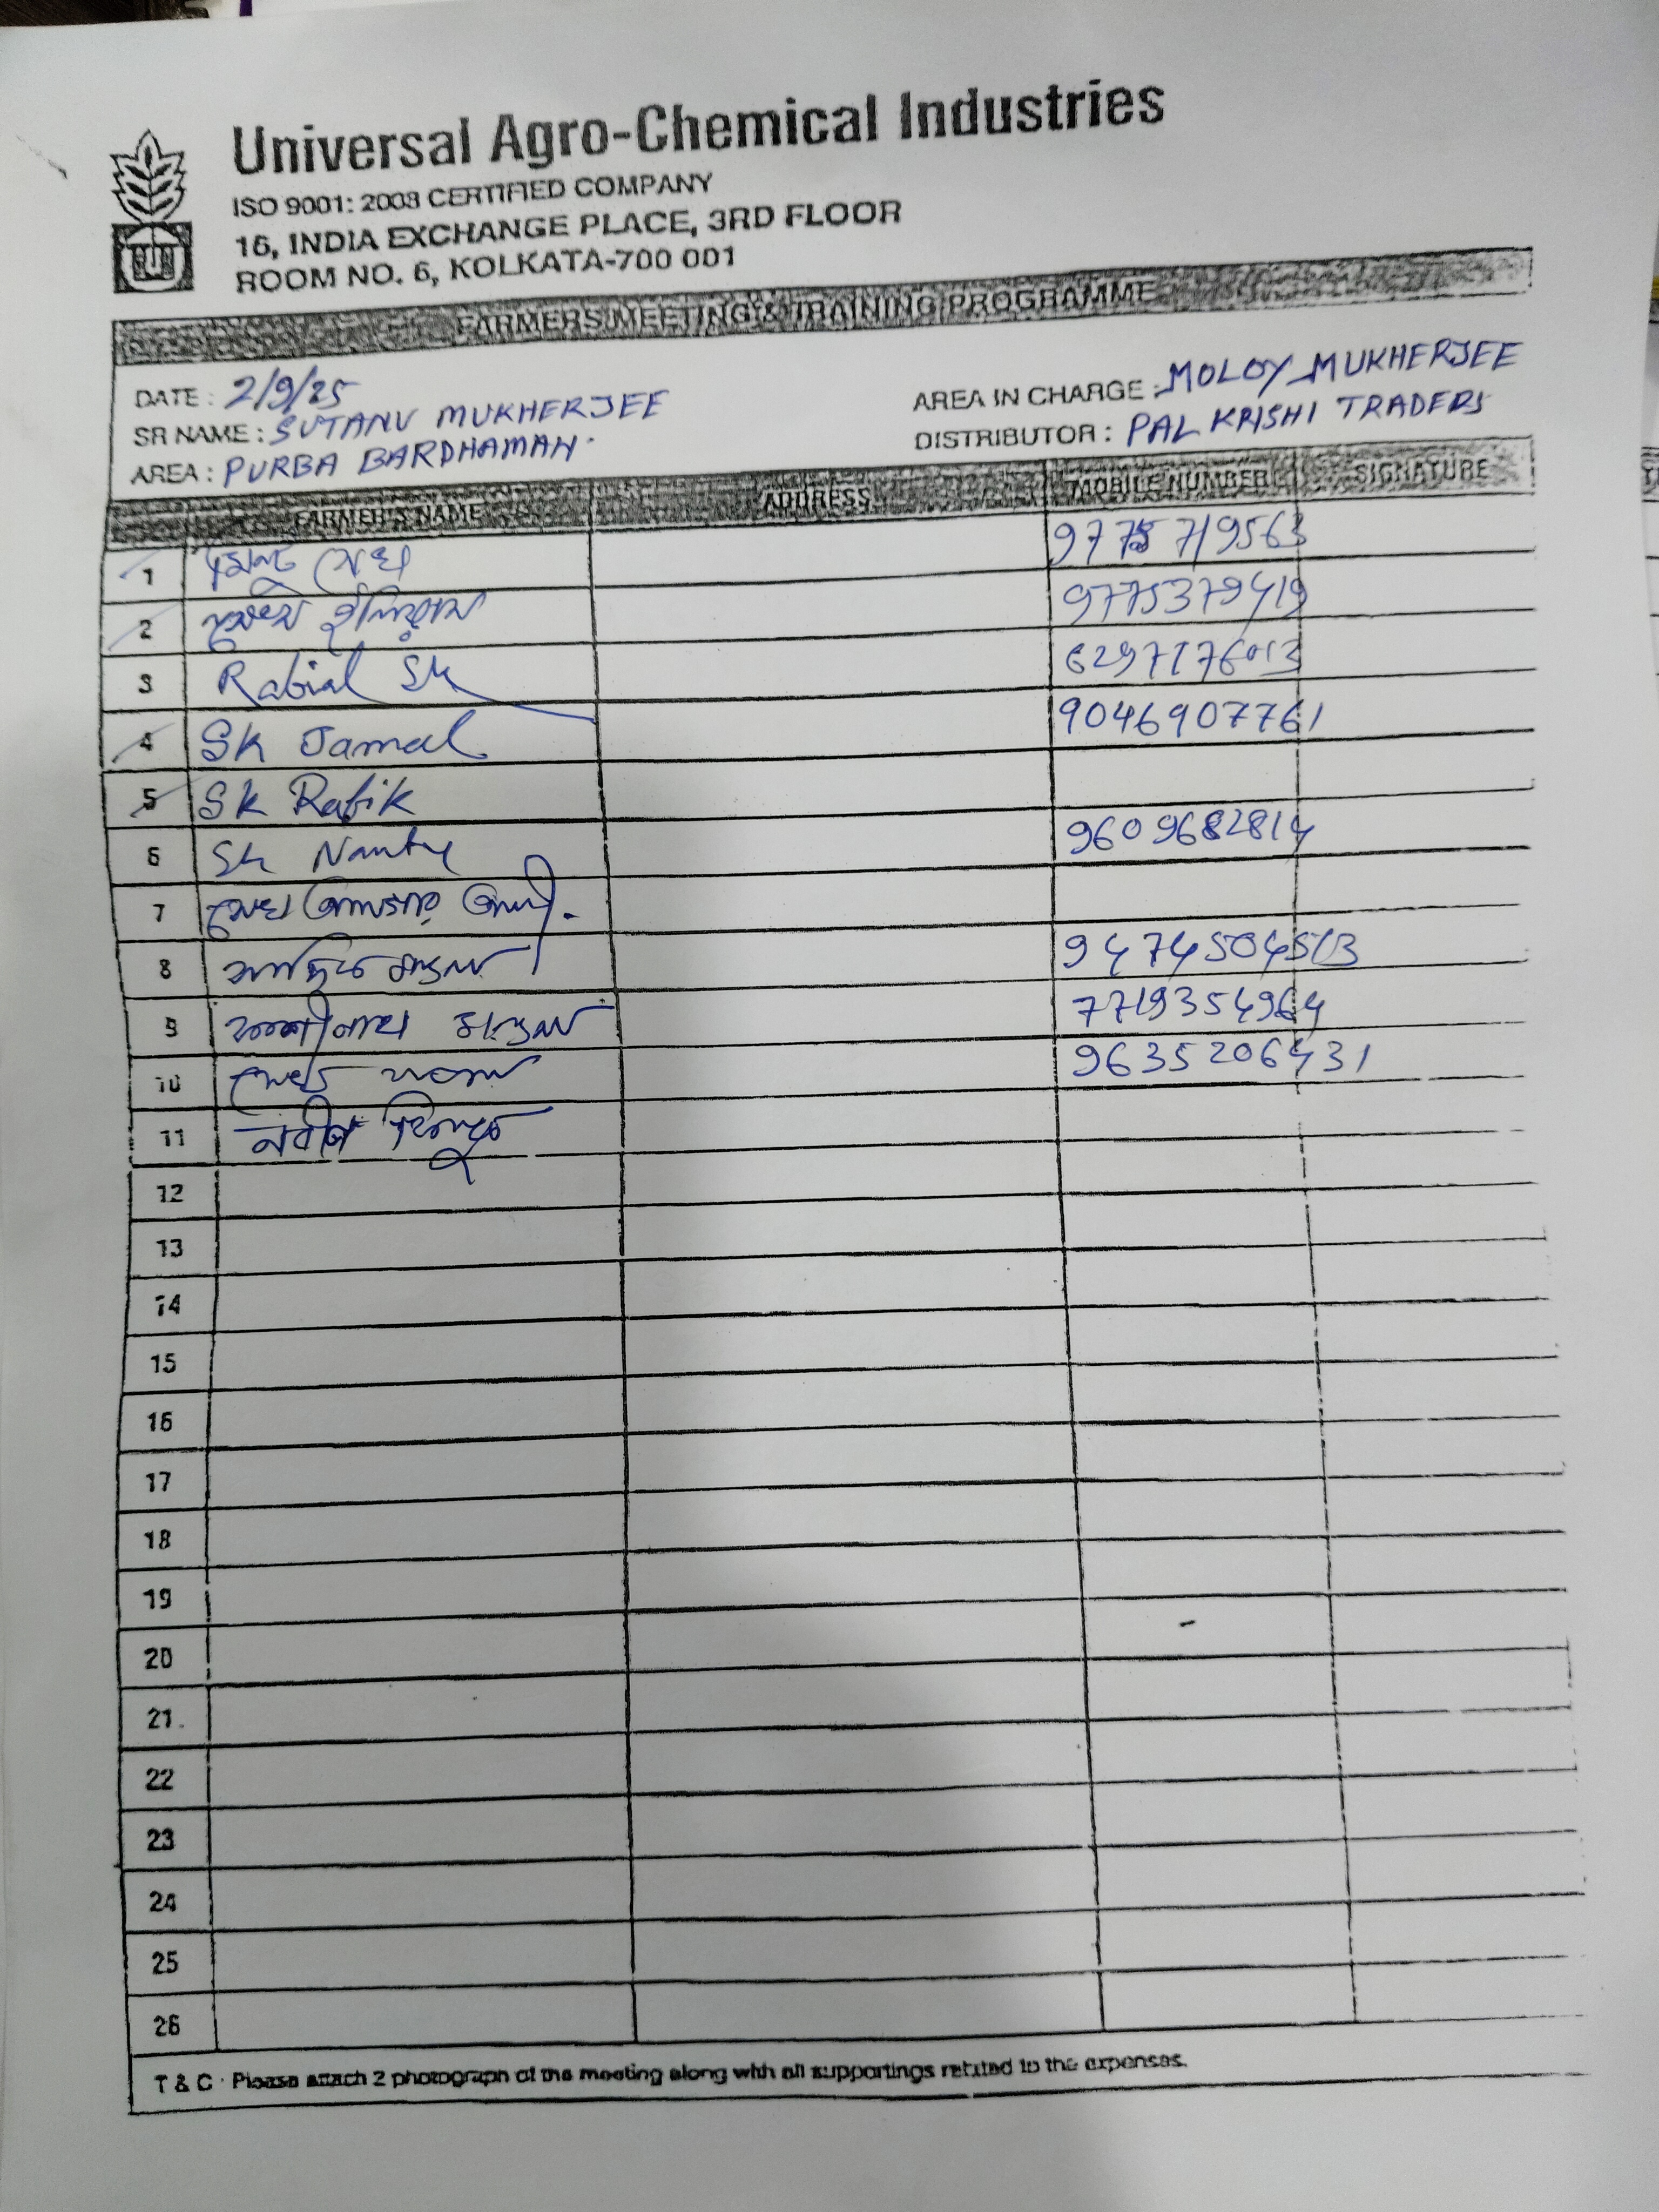 Universal Agro-Chemical Industries
ISO 9001: 2008 CERTIFIED COMPANY
16, INDIA EXCHANGE PLACE, 3RD FLOOR
ROOM NO. 6, KOLKATA-700 001
FARMERS MEETING & TRAINING PROGRAMME
DATE : 2/9/25 AREA IN CHARGE : MOLOY MUKHERJEE
SR NAME : SUTANU MUKHERJEE DISTRIBUTOR : PAL KRISHI TRADERS
AREA : PURBA BARDHAMAN.
FARMER'S NAME ADDRESS MOBILE NUMBER SIGNATURE
1 সেখ 9775719563
2 9775379419
3 Rabial Sk 6297176013
4 SK Jamal 9046907761
5 SK Rafik
6 Sk Nantu 9609682814
7 সেখ
8 মন্ডল 9474504513
9 মন্ডল 7719354964
10 9635206431
11 নবীন
12
13
14
15
16
17
18
19
20
21
22
23
24
25
26
T & C : Please attach 2 photograph of the meeting along with all supportings related to the expenses.